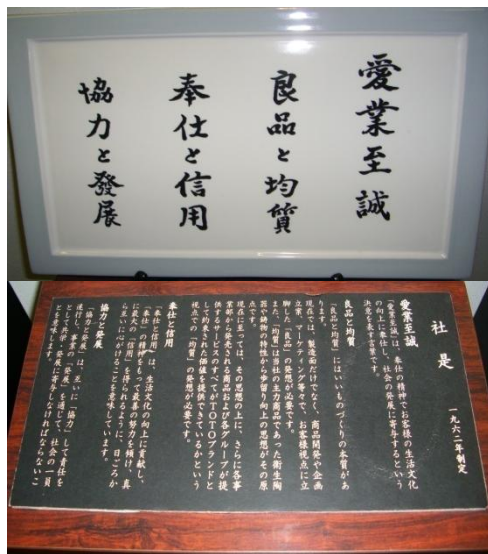 愛業至誠
良品と均質
奉仕と信用
協力と發展
社是
一九六二年制定
愛業至誠
「愛業至誠」は、奉仕の精神でお客様の生活文化
の向上に奉仕し、社会の発展に寄与するという
決意を表す言葉です。
良品と均質
「良品と均質」にはいいものづくりの本質があ
ります。「良品」の発想は、
現在では、製造面だけでなく、商品開発や企画
立案、マーケティング等々で、お客様視点に立
脚した「良品」の発想が必要です。
また、「均質」は当社の主力商品であった衛生陶
器や鋳物の特性から歩留り向上の思想がその原
点です。
現在に至っては、その思想の上に、さらに各事
業部から発売される商品および各グループが提
供するサービスのすべてがTOTOブランドと
して約束された価値を提供できているかという
視点での「均質」の発想が必要です。
奉仕と信用
「奉仕と信用」は、生活文化の向上に貢献し、
「奉仕」の精神をもって最善の努力を傾け、真
に最大の「信用」を得られるように、日ごろか
ら互いに心がけることを意味しています。
協力と発展
「協力と発展」は、互いに「協力」して責任を
遂行し、事業の「発展」を通じて、社会の一員
として共学・発展に寄与しなければならないこ
とを意味します。